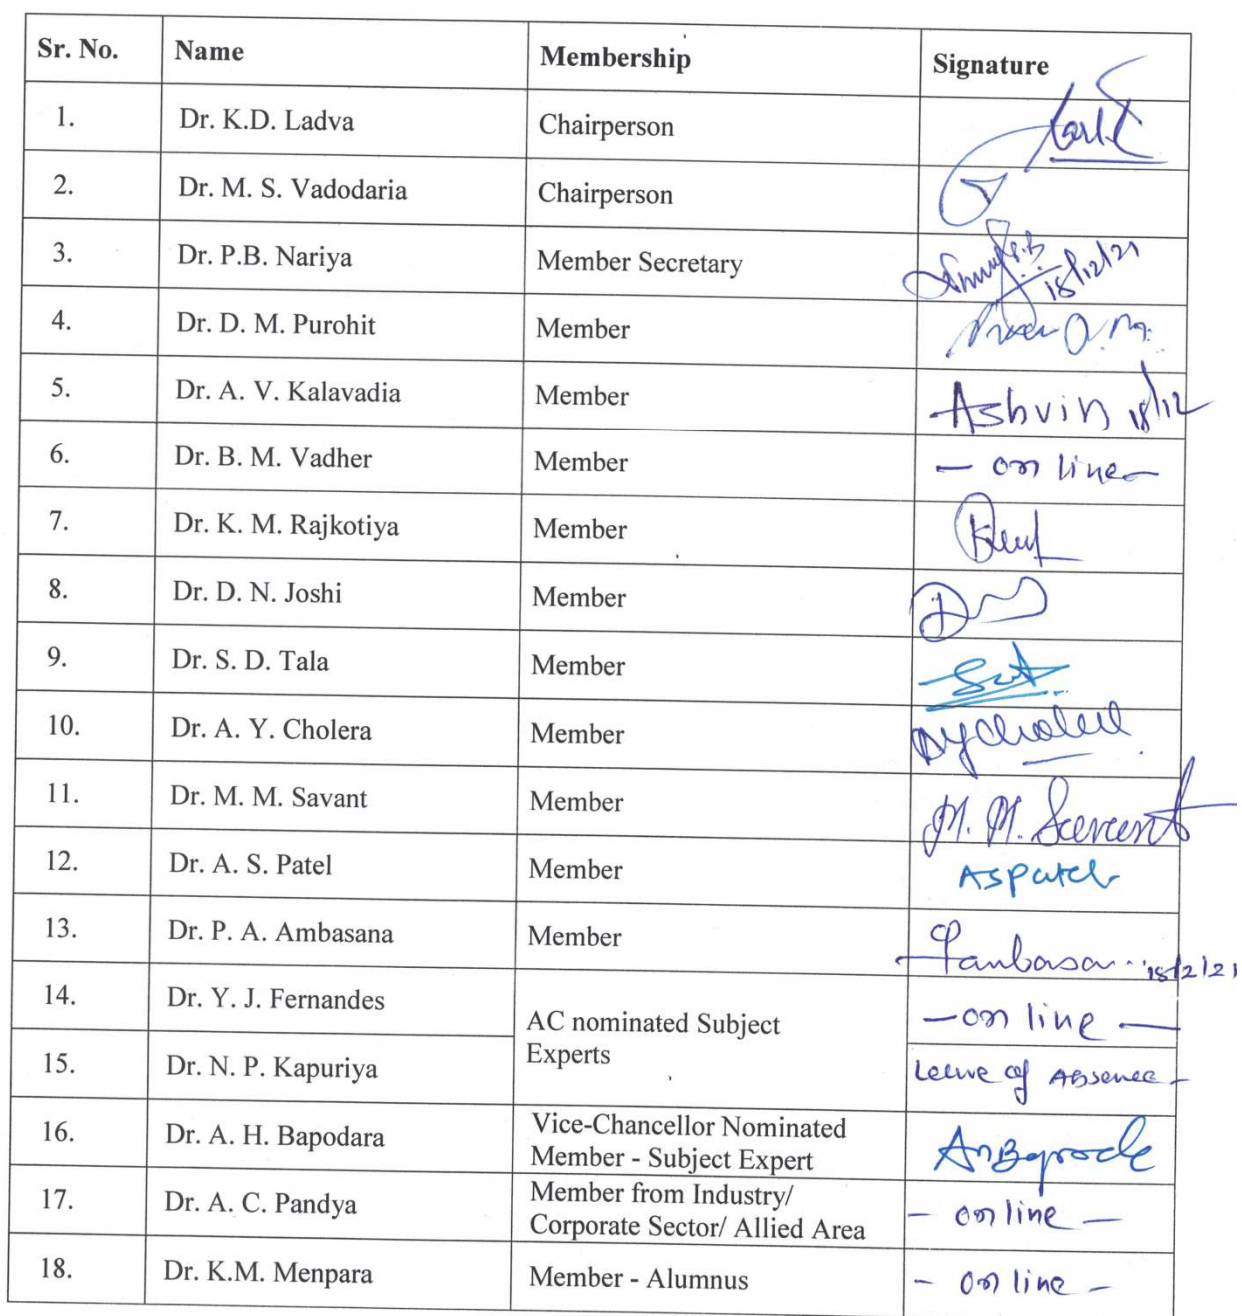 Sr. No. Name Membership Signature
1. Dr. K.D. Ladva Chairperson
2. Dr. M. S. Vadodaria Chairperson
3. Dr. P.B. Nariya Member Secretary P.B. 18/12/21
4. Dr. D. M. Purohit Member D. M.
5. Dr. A. V. Kalavadia Member Ashvin 18/12
6. Dr. B. M. Vadher Member - on line -
7. Dr. K. M. Rajkotiya Member
8. Dr. D. N. Joshi Member
9. Dr. S. D. Tala Member
10. Dr. A. Y. Cholera Member
11. Dr. M. M. Savant Member M. M. Savant
12. Dr. A. S. Patel Member ASPatel
13. Dr. P. A. Ambasana Member 18/2/21
14. Dr. Y. J. Fernandes AC nominated Subject - on line -
Experts
15. Dr. N. P. Kapuriya Leave of Absence -
16. Dr. A. H. Bapodara Vice-Chancellor Nominated
Member - Subject Expert
17. Dr. A. C. Pandya Member from Industry/ - on line -
Corporate Sector/ Allied Area
18. Dr. K.M. Menpara Member - Alumnus - on line -